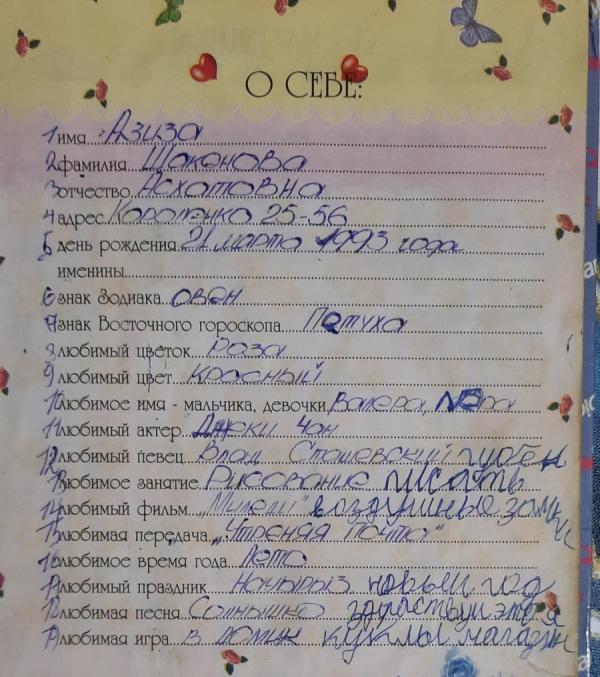 О СЕБЕ:
1 имя Азиза
2 фамилия Шакенова
3 отчество Асхатовна
4 адрес Короленко 25-56
5 день рождения 21 марта 1993 года
именины
6 знак Зодиака овен
7 знак Восточного гороскопа Петуха
8 любимый цветок роза
9 любимый цвет красный
10 любимое имя - мальчика, девочки Валера,
11 любимый актер Джеки Чан
12 любимый певец Влад Сташевский губен
13 любимое занятие Рисование писать
14 любимый фильм воздушные замки
15 любимая передача „Утреняя Почта"
16 любимое время года Лето
17 любимый праздник Наурыз новый год
18 любимая песня Солнышко здраствуй это я
19 любимая игра в домик куклы магазин